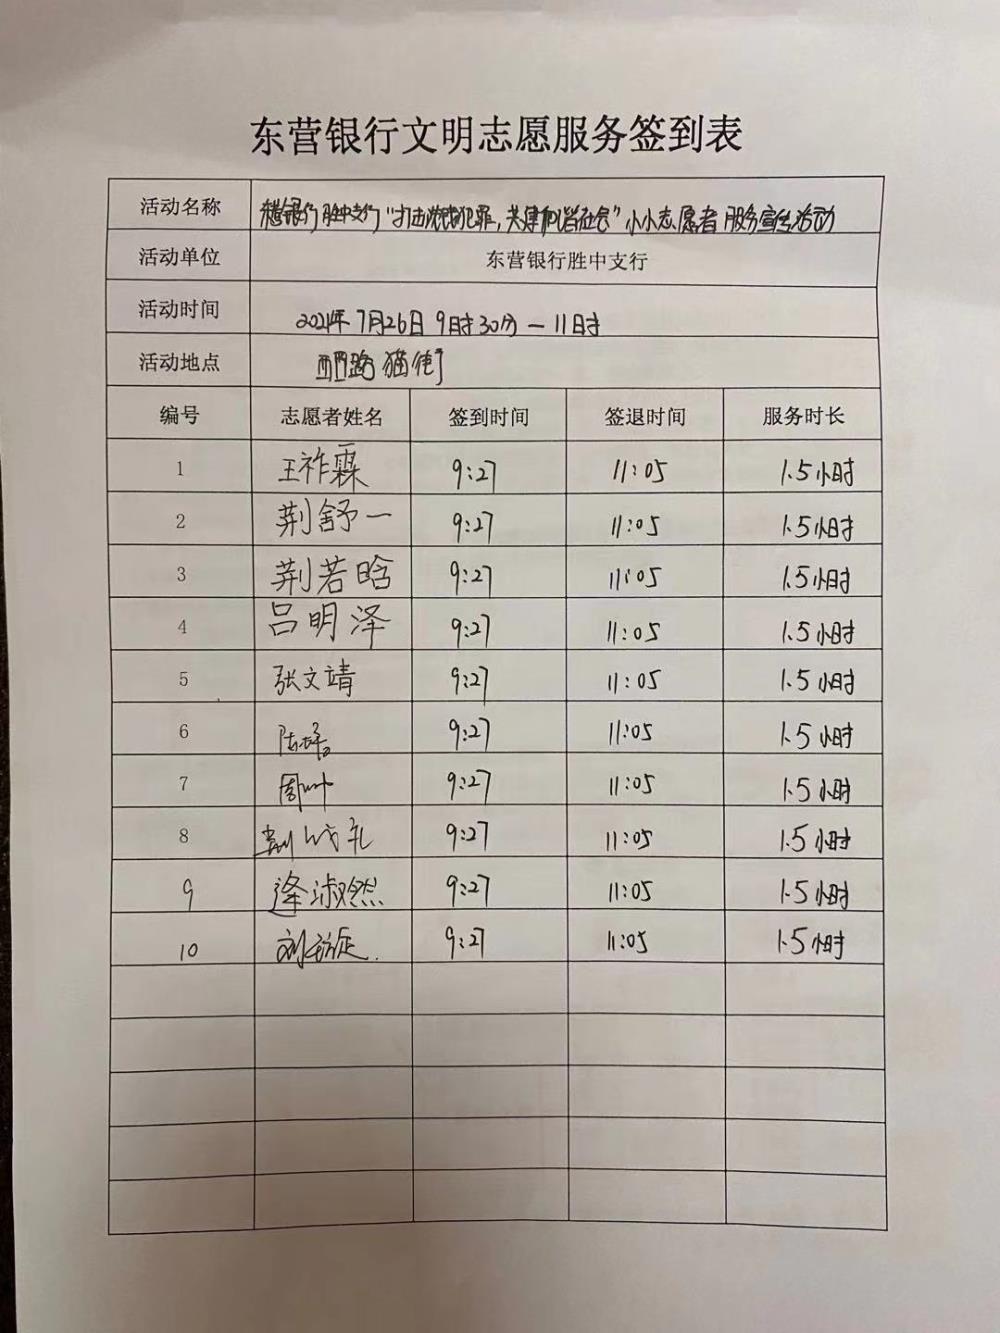 东营银行文明志愿服务签到表
活动名称 东营银行胜中支行“打击洗钱犯罪，共建和谐社会”小小志愿者服务宣传活动
活动单位 东营银行胜中支行
活动时间 2021年7月26日9时30分—11时
活动地点 西四路猫街
编号 志愿者姓名 签到时间 签退时间 服务时长
1 王祚霖 9:27 11:05 1.5小时
2 荆舒一 9:27 11:05 1.5小时
3 荆若晗 9:27 11:05 1.5小时
4 吕明泽 9:27 11:05 1.5小时
5 张文靖 9:27 11:05 1.5小时
6 9:27 11:05 1.5小时
7 9:27 11:05 1.5小时
8 9:27 11:05 1.5小时
9 逄淑然 9:27 11:05 1.5小时
10 9:27 11:05 1.5小时